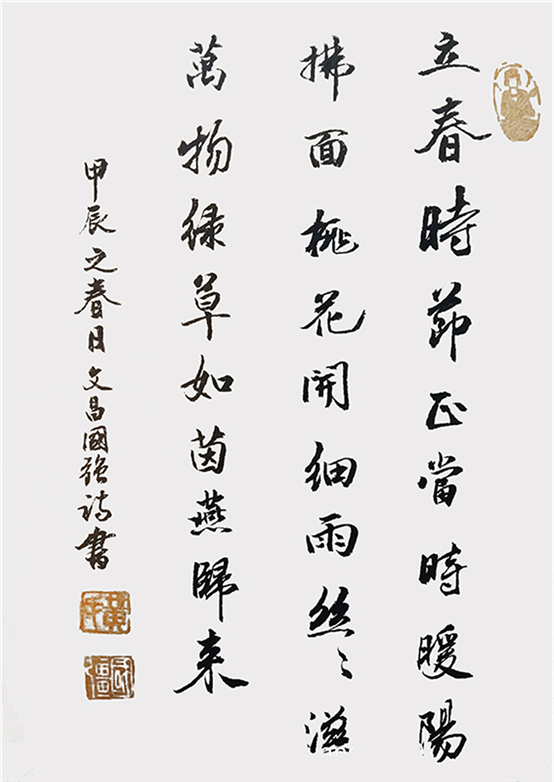 立春時節正當時暖陽
拂面桃花開細雨絲々滋
萬物緑草如茵燕歸来
甲辰之春日文昌國强詩書